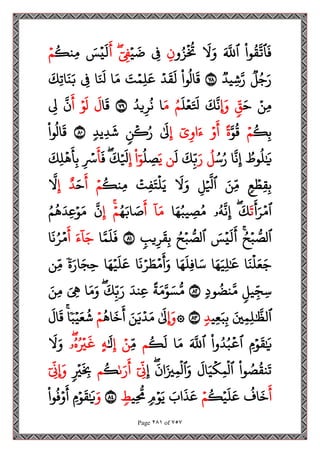 فَٱتَّقُوا۟ ٱللَّهَ وَلَا تُخْزُونِ فِى ضَيْفِىٓ ۖ أَلَيْسَ مِنكُمْ
رَجُلٌ رَّشِيدٌ ٧٨ قَالُوا۟ لَقَدْ عَلِمْتَ مَا لَنَا فِى بَنَاتِكَ
مِنْ حَقٍّ وَإِنَّكَ لَتَعْلَمُ مَا نُرِيدُ ٧٩ قَالَ لَوْ أَنَّ لِى
بِكُمْ قُوَّةً أَوْ ءَاوِىٓ إِلَىٰ رُكْنٍ شَدِيدٍ قَالُوا۟
يَٰلُوطُ إِنَّا رُسُلُ رَبِّكَ لَن يَصِلُوٓا۟ إِلَيْكَ ۖ فَأَسْرِ بِأَهْلِكَ
بِقِطْعٍ مِّنَ ٱلَّيْلِ وَلَا يَلْتَفِتْ مِنكُمْ أَحَدٌ إِلَّا
ٱمْرَأَتَكَ ۖ إِنَّهُۥ مُصِيبُهَا مَآ أَصَابَهُمْ ۚ إِنَّ مَوْعِدَهُمُ
ٱلصُّبْحُ ۚ أَلَيْسَ ٱلصُّبْحُ بِقَرِيبٍ ٨١ فَلَمَّا جَآءَ أَمْرُنَا
جَعَلْنَا عَٰلِيَهَا سَافِلَهَا وَأَمْطَرْنَا عَلَيْهَا حِجَارَةً مِّن
سِجِّيلٍ مَّنضُودٍ ٨٢ مُّسَوَّمَةً عِندَ رَبِّكَ ۖ وَمَا هِىَ مِنَ
ٱلظَّٰلِمِينَ بِبَعِيدٍ ٨٣ ۞ وَإِلَىٰ مَدْيَنَ أَخَاهُمْ شُعَيْبًا ۚ قَالَ
يَٰقَوْمِ ٱعْبُدُوا۟ ٱللَّهَ مَا لَكُم مِّنْ إِلَٰهٍ غَيْرُهُۥ ۖ وَلَا
تَنقُصُوا۟ ٱلْمِكْيَالَ وَٱلْمِيزَانَ ۚ إِنِّىٓ أَرَىٰكُم بِخَيْرٍ وَإِنِّىٓ
أَخَافُ عَلَيْكُمْ عَذَابَ يَوْمٍ مُّحِيطٍ ٨٤ وَيَٰقَوْمِ أَوْفُوا۟
Page ٢٨١ of ٧٥٧